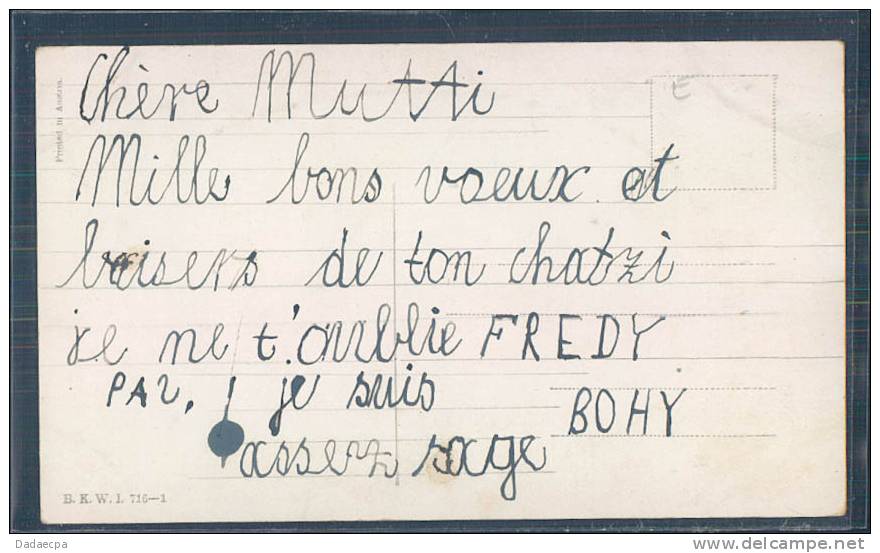 Printed in Austria.
E
Chère Mutti
Mille bons voeux et
baisers de ton chatzi
je ne t'oublie FREDY
PAS, je suis
BOHY
assez sage
B. K. W. I. 716—1
Dadaecpa
www.delcampe.net